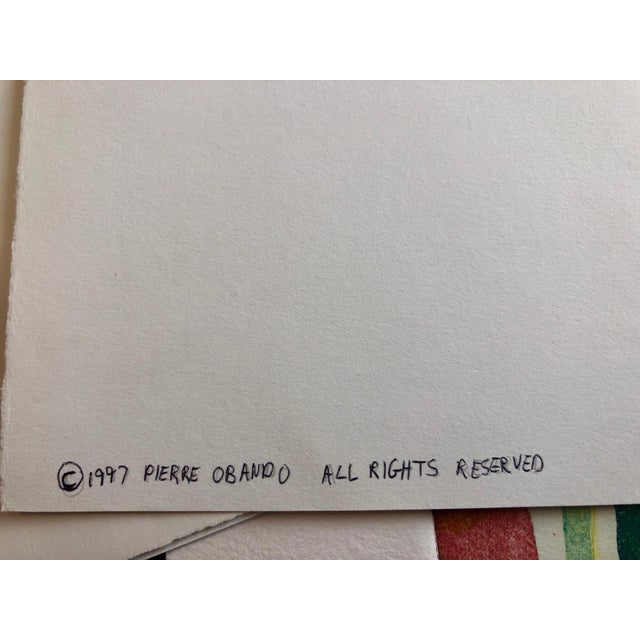 ©1997 PIERRE OBANDO ALL RIGHTS RESERVED